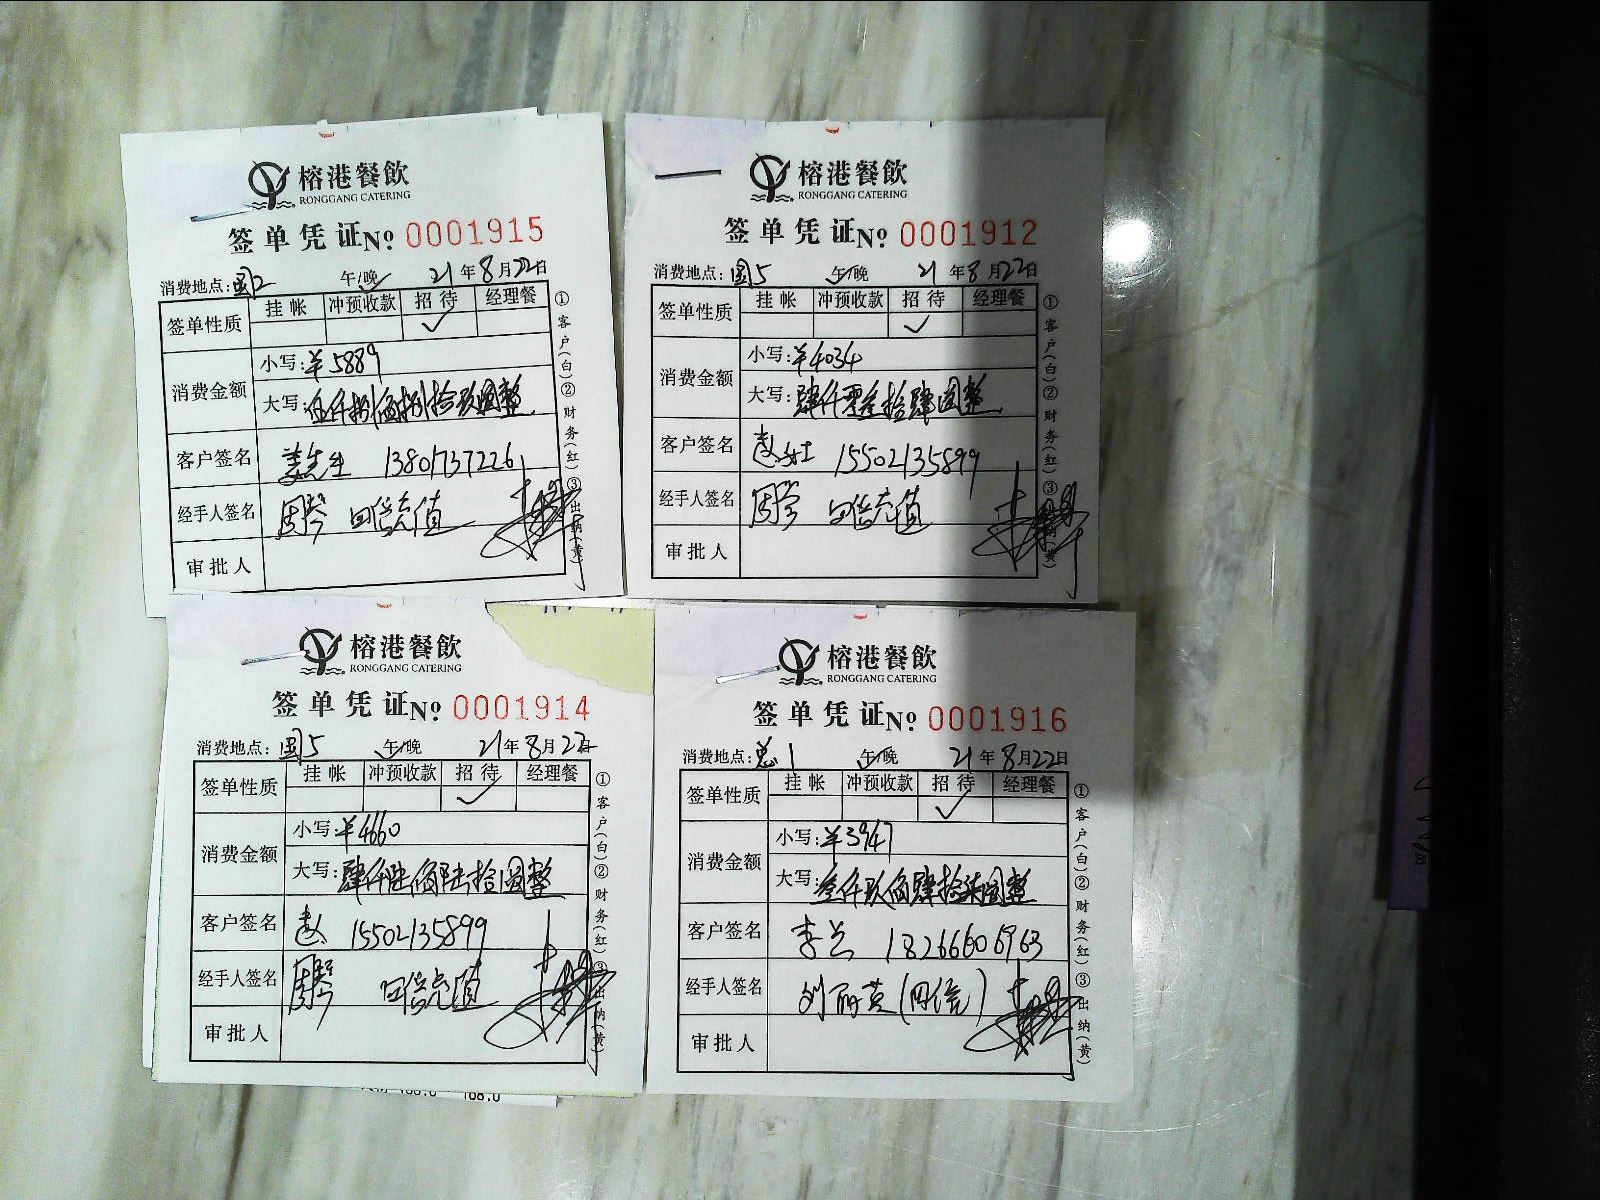 榕港餐飲
RONGGANG CATERING
签单凭证No 0001915
消费地点: 国2 午/晚 21年8月22日
签单性质 挂帐 冲预收款 招待 经理餐
✓
消费金额 小写:¥5889
大写:伍仟捌佰捌拾玖圆整
客户签名 姜先生 13801737226
经手人签名 周琴 四倍充值
审批人
①客户(白)②财务(红)③出纳(黄)
榕港餐飲
RONGGANG CATERING
签单凭证No 0001912
消费地点: 国5 午/晚 21年8月22日
签单性质 挂帐 冲预收款 招待 经理餐
✓
消费金额 小写:¥4034
大写:肆仟零叁拾肆圆整
客户签名 赵女士 15502135899
经手人签名 周琴 四倍充值
审批人
①客户(白)②财务(红)③出纳(黄)
榕港餐飲
RONGGANG CATERING
签单凭证No 0001914
消费地点: 国5 午/晚 21年8月22日
签单性质 挂帐 冲预收款 招待 经理餐
✓
消费金额 小写:¥4660
大写:肆仟陆佰陆拾圆整
客户签名 赵 15502135899
经手人签名 周琴 四倍充值
审批人
①客户(白)②财务(红)③出纳(黄)
168.0
榕港餐飲
RONGGANG CATERING
签单凭证No 0001916
消费地点: 总1 午/晚 21年8月22日
签单性质 挂帐 冲预收款 招待 经理餐
✓
消费金额 小写:¥3947
大写:叁仟玖佰肆拾柒圆整
客户签名 李兰 18266606963
经手人签名 刘丽英(四倍)
审批人
①客户(白)②财务(红)③出纳(黄)